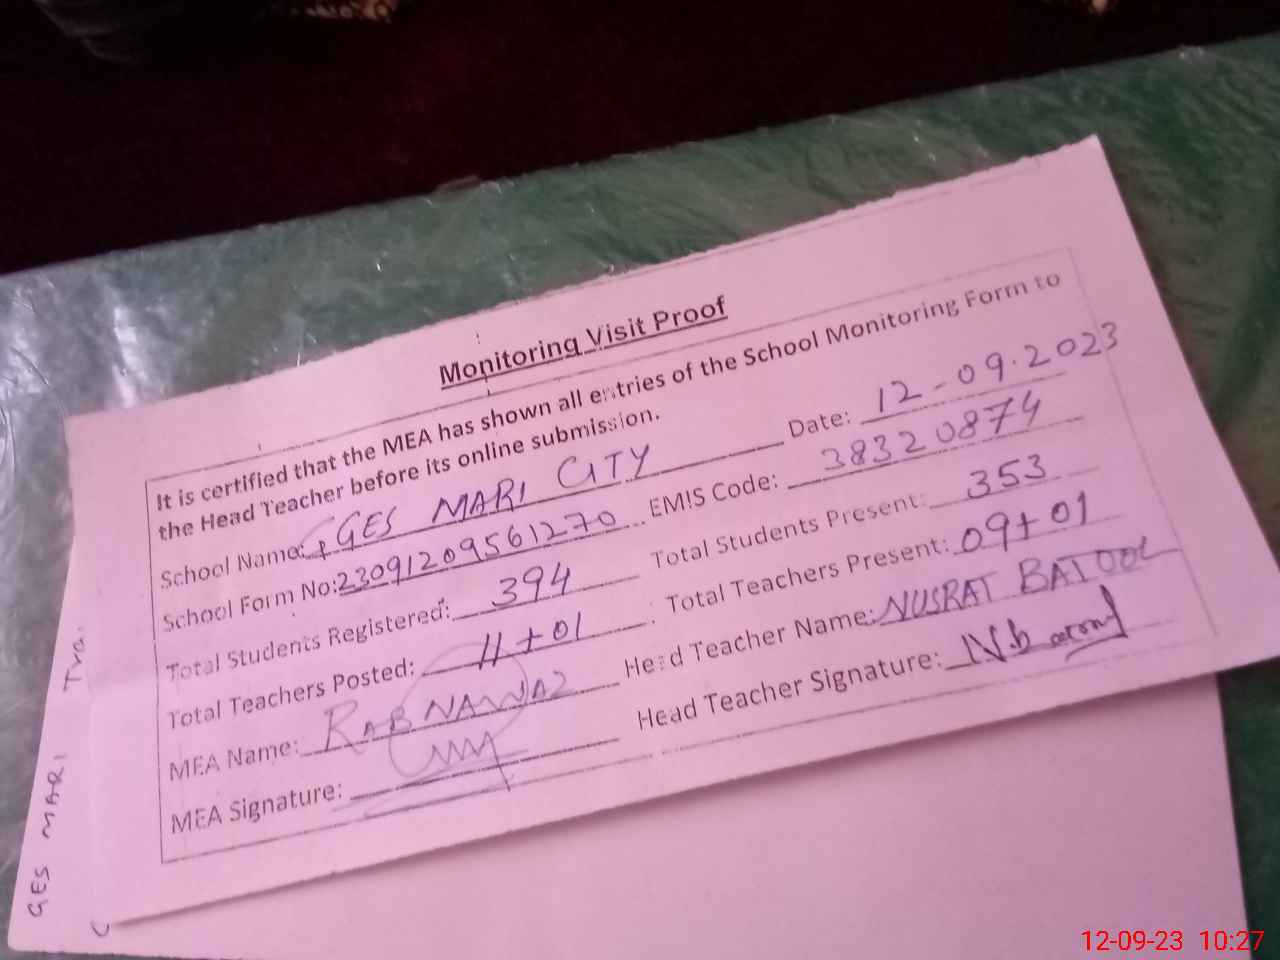 Monitoring Visit Proof
It is certified that the MEA has shown all entries of the School Monitoring Form to
the Head Teacher before its online submission.
School Name: GGES MARI CITY Date: 12-09.2023
School Form No: 23091209561270 EMIS Code: 38320874
Total Students Registered: 394 Total Students Present: 353
Total Teachers Posted: 11+01 Total Teachers Present: 09+01
MEA Name: RAB NAWAZ Head Teacher Name: NUSRAT BATOOL
MEA Signature: Head Teacher Signature: N.b
GES MARI Tra.
12-09-23 10:27